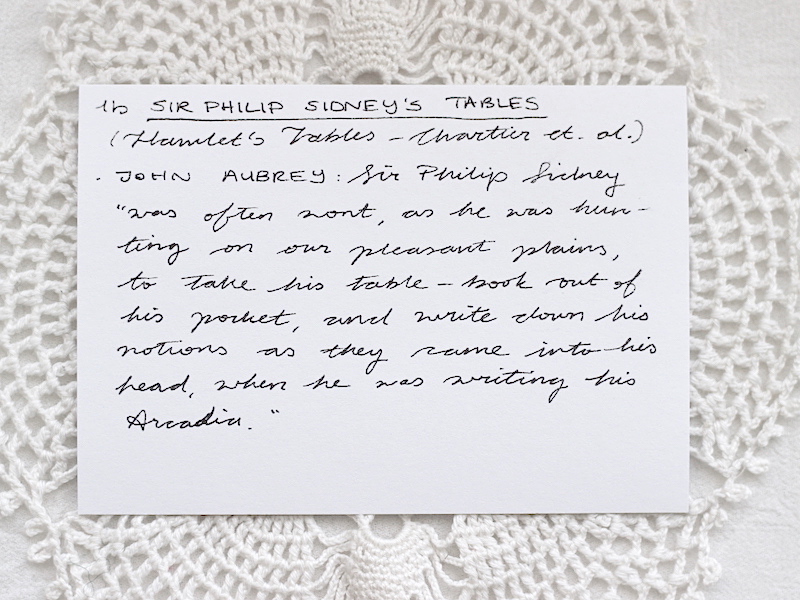 1b SIR PHILIP SIDNEY'S TABLES
(Hamlet's Tables – Chartier et. al.)
· JOHN AUBREY: Sir Philip Sidney
"was often wont, as he was hun-
ting on our pleasant plains,
to take his table-book out of
his pocket, and write down his
notions as they came into his
head, when he was writing his
Arcadia."